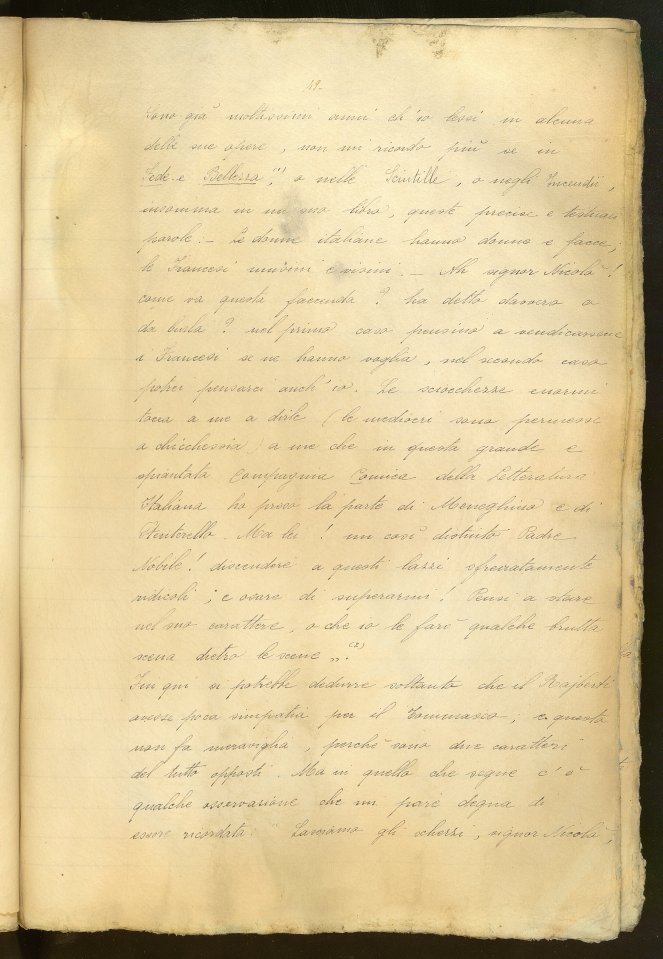 49.
Sono già moltissimi anni ch'io lessi in alcuna
delle sue opere, non mi ricordo più se in
Fede e Bellezza, (1) o nelle Scintille, o negli Incendii,
insomma in un suo libro, queste precise e testuali
parole. — Le donne italiane hanno donne e facce;
le Francesi musini e visini. — Ah signor Nicolò!
come va questa faccenda? ha detto davvero o
da burla? nel primo caso pensino a vendicarsene
i Francesi se ne hanno voglia, nel secondo caso
potrei pensarci anch'io. Le sciocchezze enormi
tocca a me a dirle (le mediocri sono permesse
a chicchessia) a me che in questa grande e
spiantata Compagnia Comica della Letteratura
Italiana ho preso la parte di Meneghino e di
Stenterello. Ma lei! un così distinto Padre
Nobile! discendere a questi lazzi sfrenatamente
ridicoli; e osare di superarmi! Pensi a stare
nel suo carattere, o che io le farò qualche brutta
scena dietro le scene „. (2)
Fin qui si potrebbe dedurre soltanto che il Rajberti
avesse poca simpatia per il Tommaseo; e questo
non fa meraviglia, perchè sono due caratteri
del tutto opposti. Ma in quello che segue c'è
qualche osservazione che mi pare degna di
essere ricordata: "Lasciamo gli scherzi, signor Nicolò,